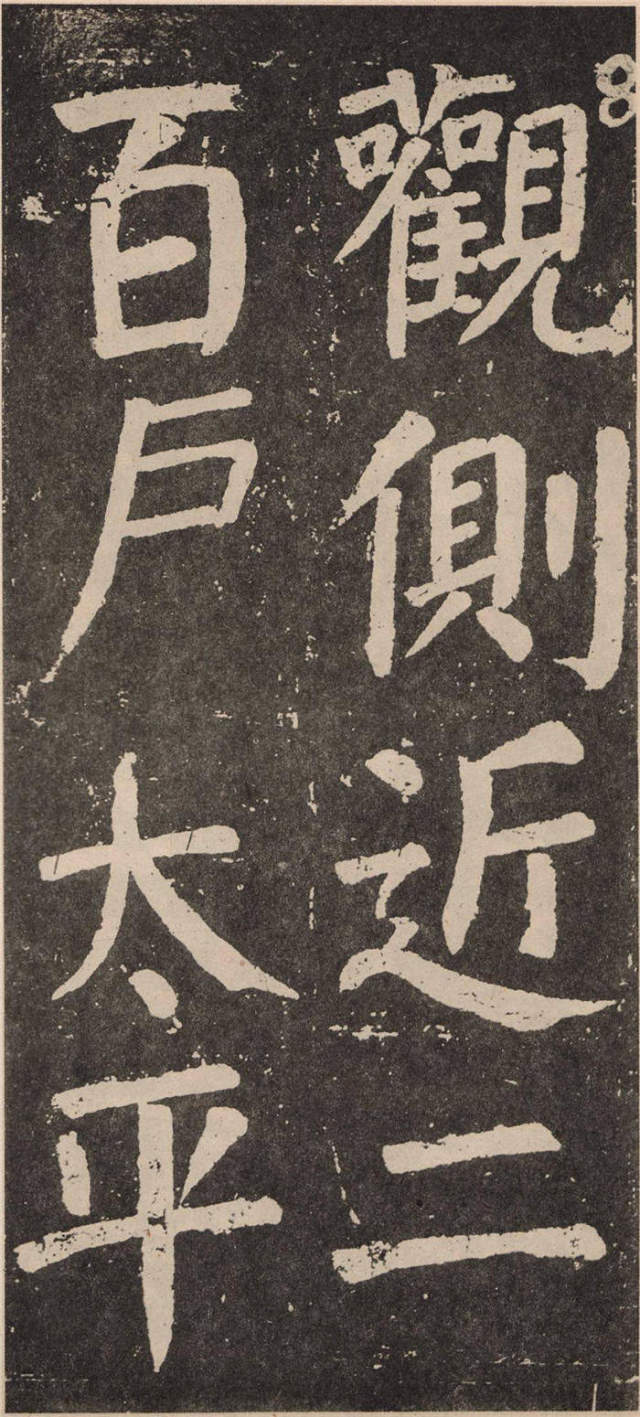 觀側近二
百戶太平